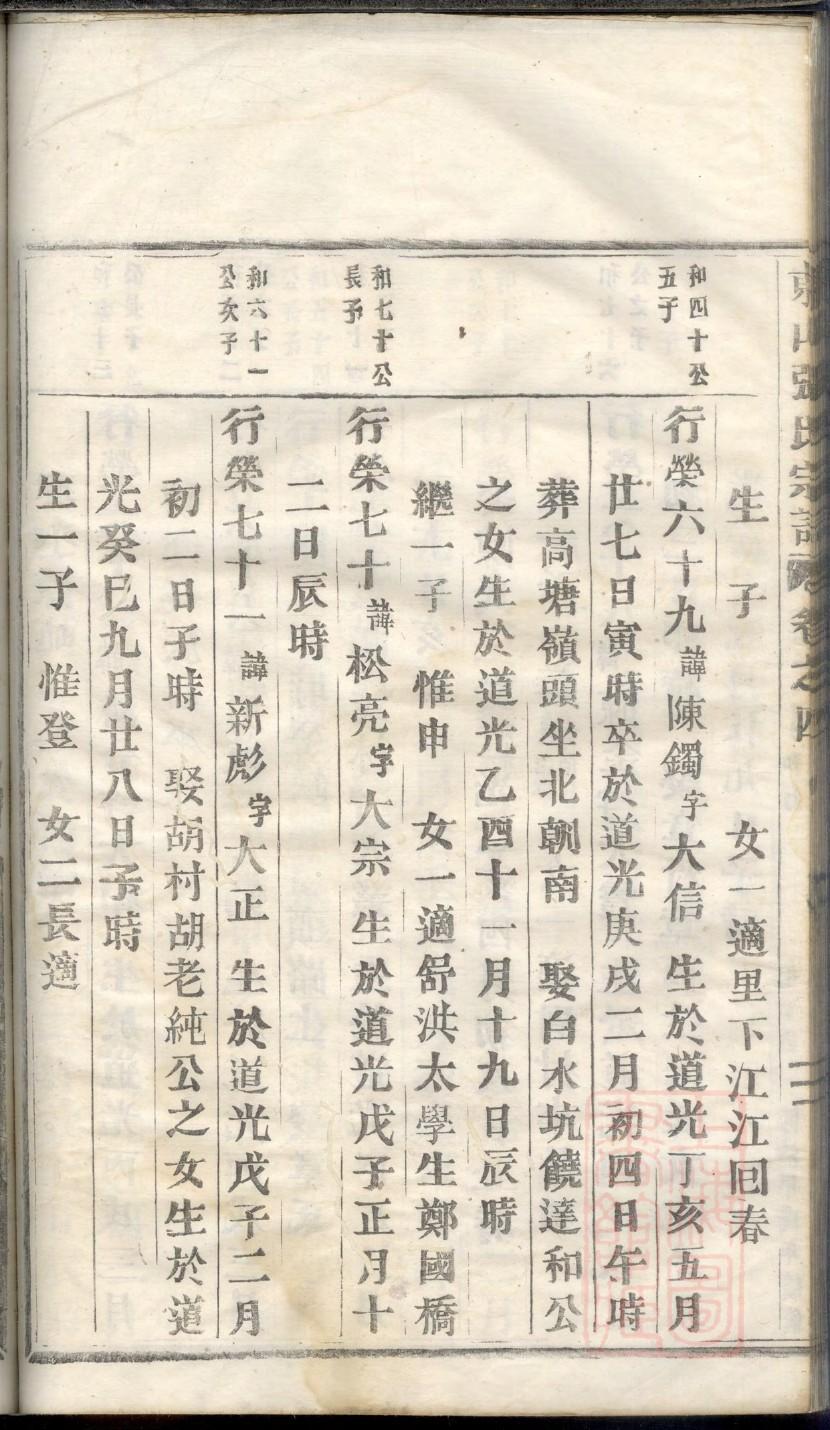 張氏宗譜卷之四
生子 女一適里下江江囘春
和四十公
五子
行榮六十九諱陳鐲字大信 生於道光丁亥五月
廿七日寅時卒於道光庚戌二月初四日午時
葬高塘嶺頭坐北朝南 娶白水坑饒達和公
之女生於道光乙酉十一月十九日辰時
繼一子 惟申 女一適舒洪太學生鄭國橋
和七十公
長子
行榮七十諱松亮字大宗 生於道光戊子正月十
二日辰時
和六十一
公次子
行榮七十一諱新彪字大正 生於道光戊子二月
初二日子時 娶胡村胡老純公之女生於道
光癸巳九月廿八日子時
生一子 惟登 女二長適